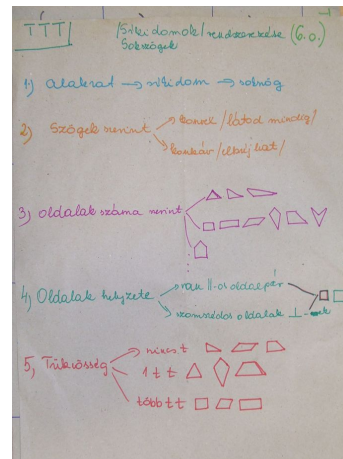 TTT
/Síkidomok/ rendszerezése (6.o.)
Sokszögek
1) Alakzat → síkidom → sokszög
2) Szögek szerint → konvex /látod mindig/
→ konkáv /elbújhat/
3) Oldalak száma szerint
4) Oldalak helyzete → van II-os oldalpár
→ szomszédos oldalak ⊥-ek
5) Tükrösség → nincs t
1 t t
több t t